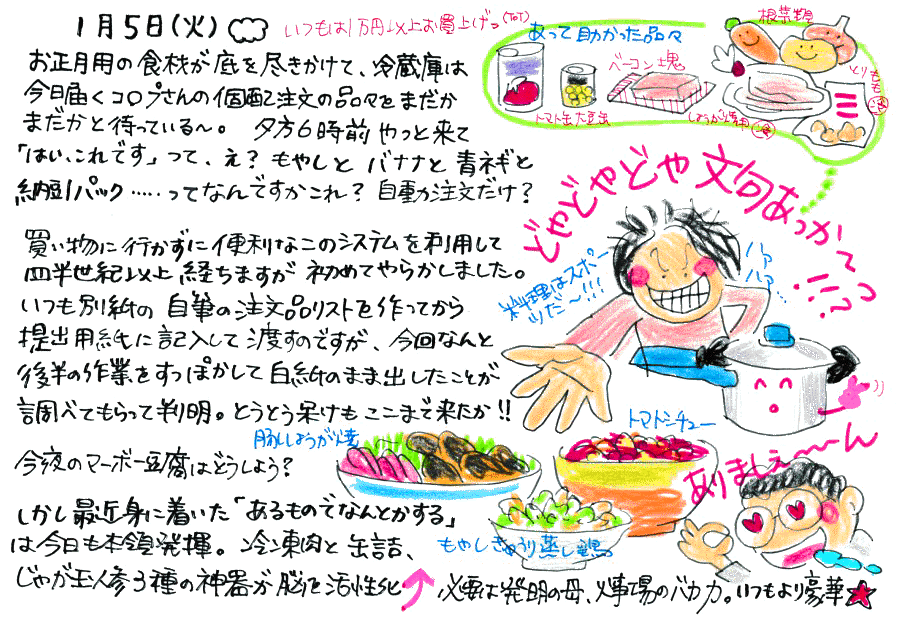 1月5日(火)
いつもは1万円以上お買上げっ(ToT)
お正月用の食材が底を尽きかけて、冷蔵庫は
今日届くコロプさんの個配注文の品々をまだか
まだかと待っている〜。 夕方6時前やっと来て
「はい、これです」って、え?もやしと バナナと 青ネギと
納豆1パック……ってなんですかこれ?自動注文だけ?
買い物に行かずに便利なこのシステムを利用して
四半世紀以上 経ちますが 初めてやらかしました。
いつも別紙の 自筆の注文品リストを作ってから
提出用紙に記入して 渡すのですが、今回なんと
後半の作業をすっぽかして 白紙のまま出したことが
調べてもらって判明。とうとう呆けもここまで来たか!!
今夜のマーボー豆腐はどうしよう?
しかし最近身に着いた「あるものでなんとかする」
は今日も本領発揮。 冷凍肉と缶詰、
じゃが玉人参3種の神器が脳を活性化
必要は発明の母、火事場のバカ力。いつもより豪華★
あって助かった品々
根菜類
ベーコン塊
とりもも
トマト缶
大豆缶
しょうが焼用
どやどやどや文句あっかってっ!!
料理はスポーツだ〜!!!
ハアハア…
豚しょうが焼
トマトシチュー
もやしきゅうり蒸し鶏
ありましぇ〜〜ん